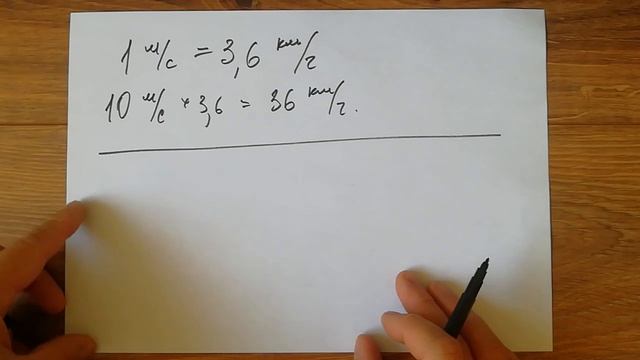 1 м/с = 3,6 км/ч
10 м/с * 3,6 = 36 км/ч.